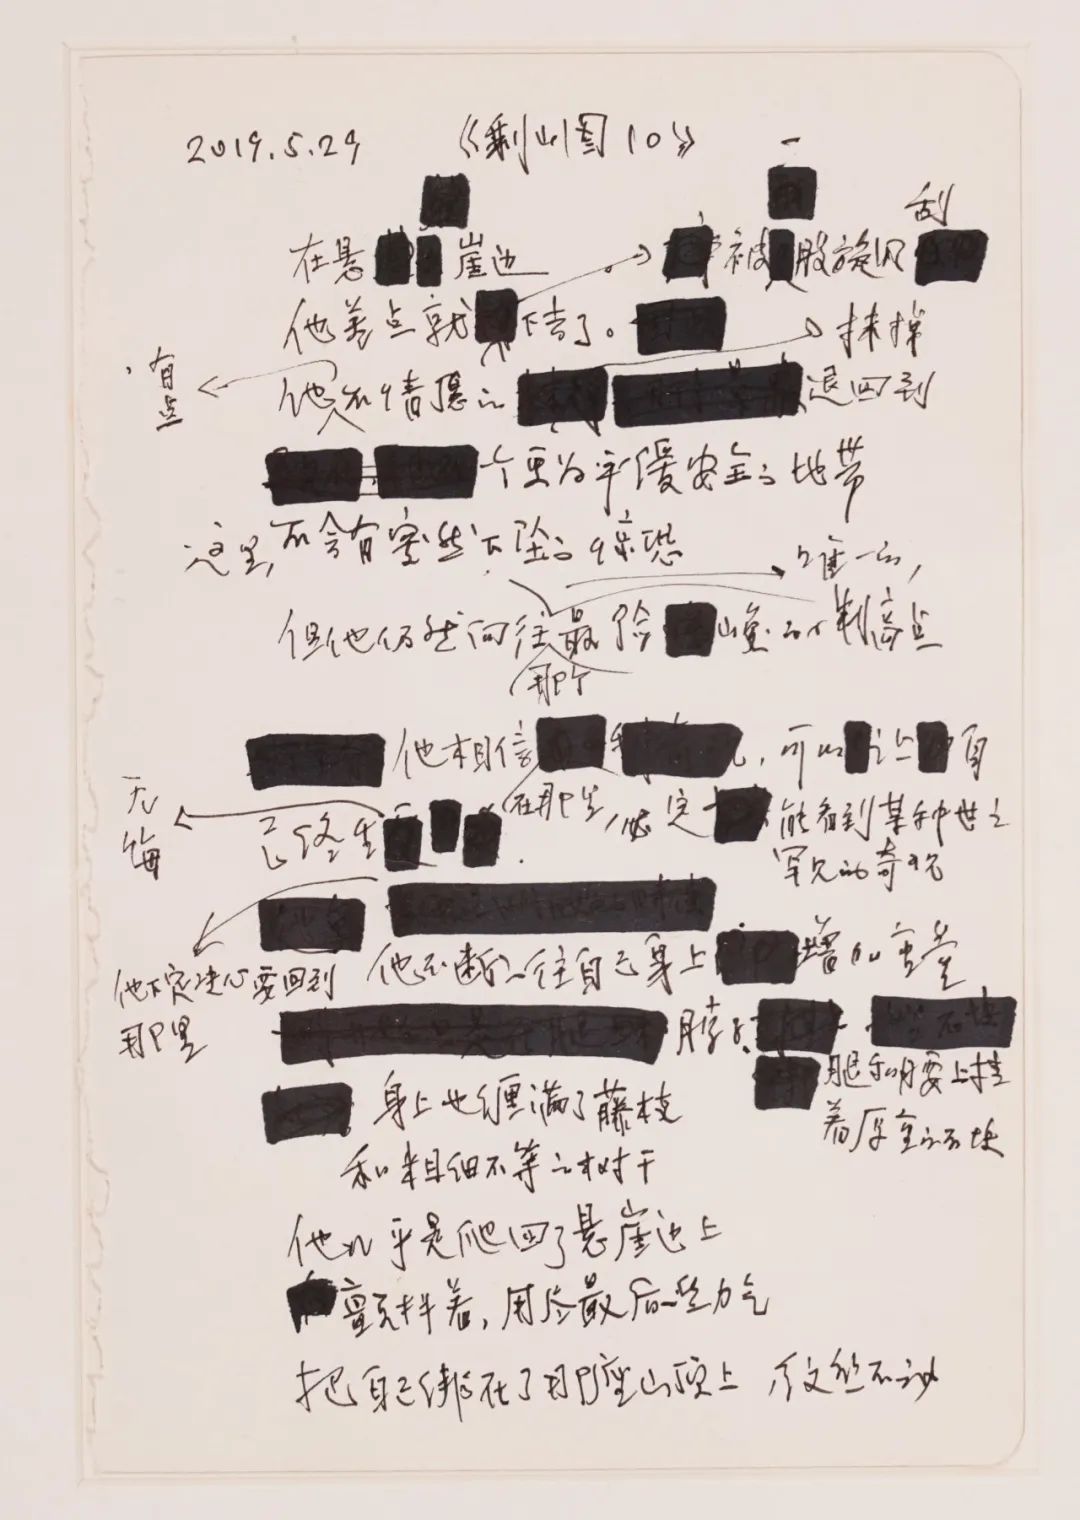 2019.5.29 《剩山图10》
一
刮
在悬崖边 被股旋风
他差点就下去了。
抹掉
有点
他不情愿的退回到
个更为平缓安全的地带
这里,不会有突然下坠的惊恐
唯一的,
但他仍然向往最险山峦的制高点
那个
他相信,可以让自
无悔
己终生
在那里,必定能看到某种世上
罕见的奇观
他下定决心要回到
那里
他不断的往自己身上增加重量
脖子
腿和腰上挂
着厚重的石块
身上也缠满了藤枝
和粗细不等的树干
他几乎是爬回了悬崖边上
颤抖着,用尽最后一些力气
把自己绑在了那座山顶上 纹丝不动